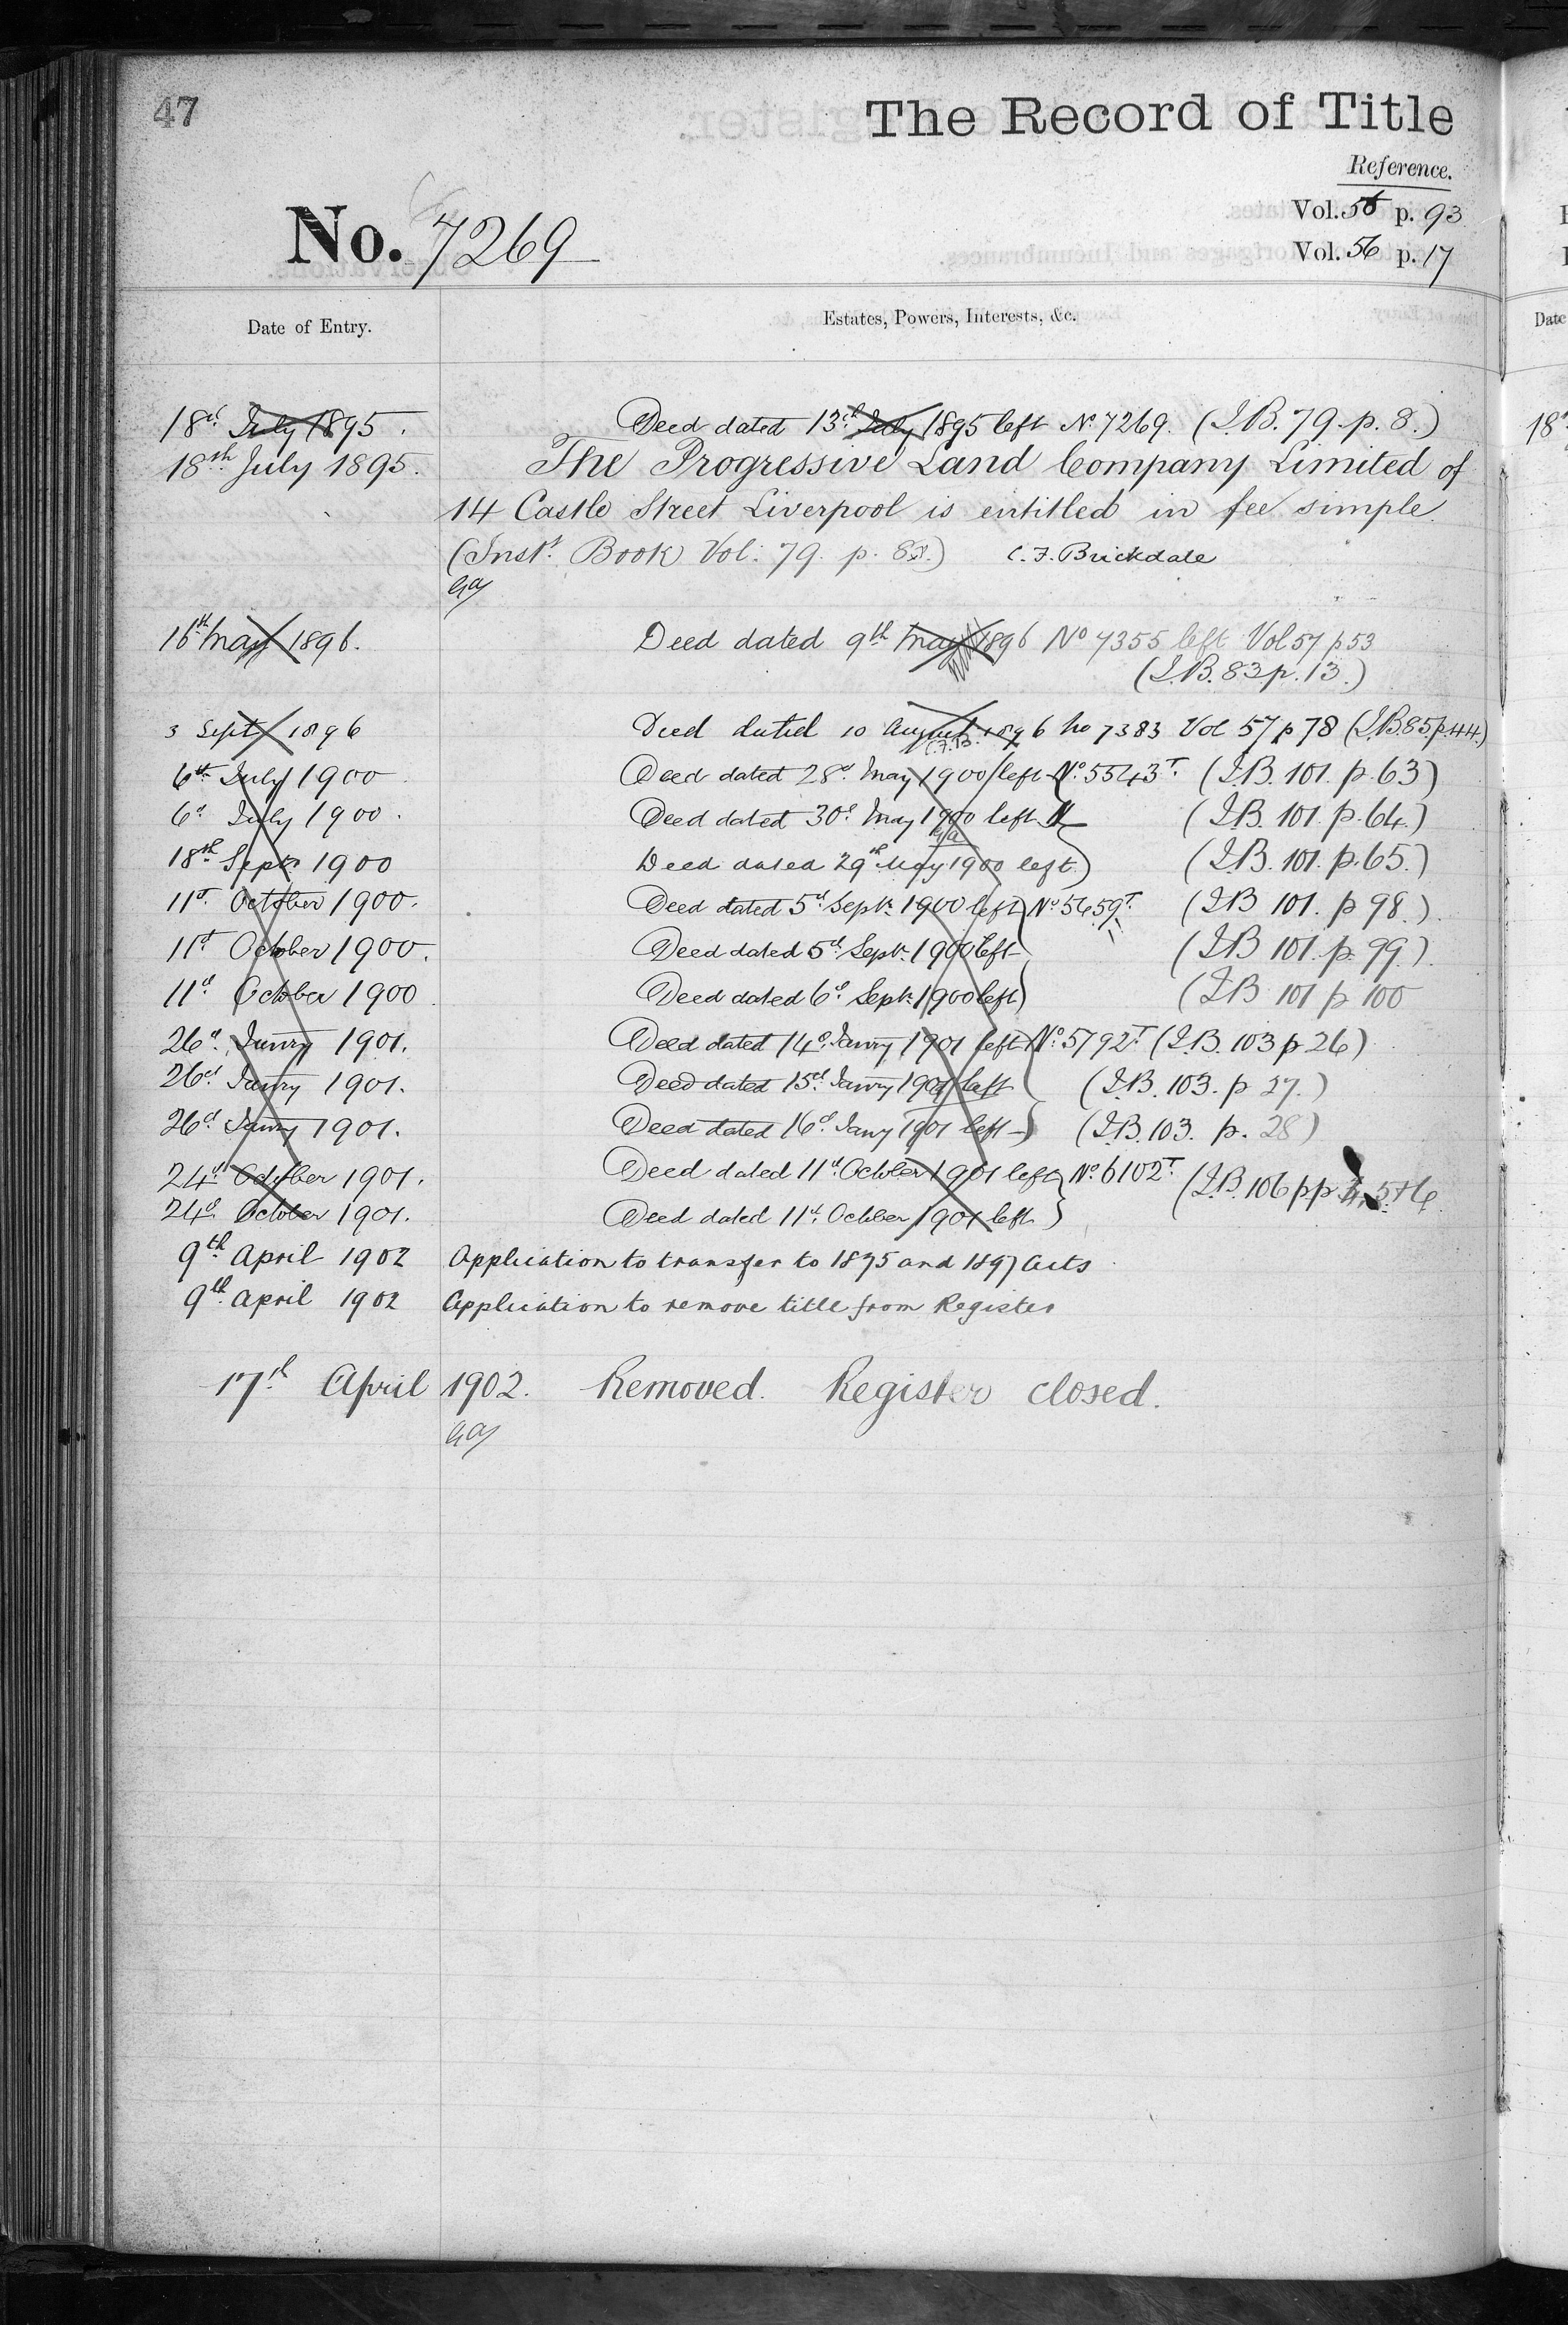 47
The Record of Title
Reference.
Vol. 56 p. 93
No. 7269
Vol. 56 p. 17
Date of Entry. Estates, Powers, Interests, &c. Date
18th July 1895. Deed dated 13th July 1895 left No 7269. (I.B. 79. p. 8.)
18th July 1895. The Progressive Land Company Limited of
14 Castle Street Liverpool is entitled in fee simple
(Inst. Book Vol: 79. p. 8.) C. F. Brickdale
16th May 1896. Deed dated 9th May 1896 No 7355 left Vol 57 p 53
(I.B. 83 p. 13.)
3 Sept 1896 Deed dated 10 August 1896 no 7383 Vol 57 p 78 (I.B. 85. p. 44)
C.F.B.
6th July 1900 Deed dated 28th May 1900 left No. 5543T. (I.B. 101. p. 63)
6th July 1900. Deed dated 30th May 1900 left (I.B. 101. p. 64.)
18th Sept 1900 Deed dated 29th May 1900 left (I.B. 101. p. 65.)
11th October 1900. Deed dated 5th Sept. 1900 left No. 5659T. (I.B 101. p 98.)
11th October 1900. Deed dated 5th Sept. 1900 left (I.B 101. p. 99.)
11th October 1900 Deed dated 6th Sept. 1900 left (I.B 101 p 100
26th Janry 1901. Deed dated 14th Janry 1901 left No. 5792T (I.B. 103 p 26)
26th Janry 1901. Deed dated 15th Janry 1901 left (I.B. 103. p 27.)
26th Janry 1901. Deed dated 16th Jany 1901 left (I.B. 103. p. 28)
24th October 1901. Deed dated 11th October 1901 left No. 6102T (I.B. 106 pp 5+6
24th October 1901. Deed dated 11th October 1901 left
9th April 1902 Application to transfer to 1875 and 1897 Acts
9th April 1902 Application to remove title from Register
17th April 1902. Removed. Register closed.